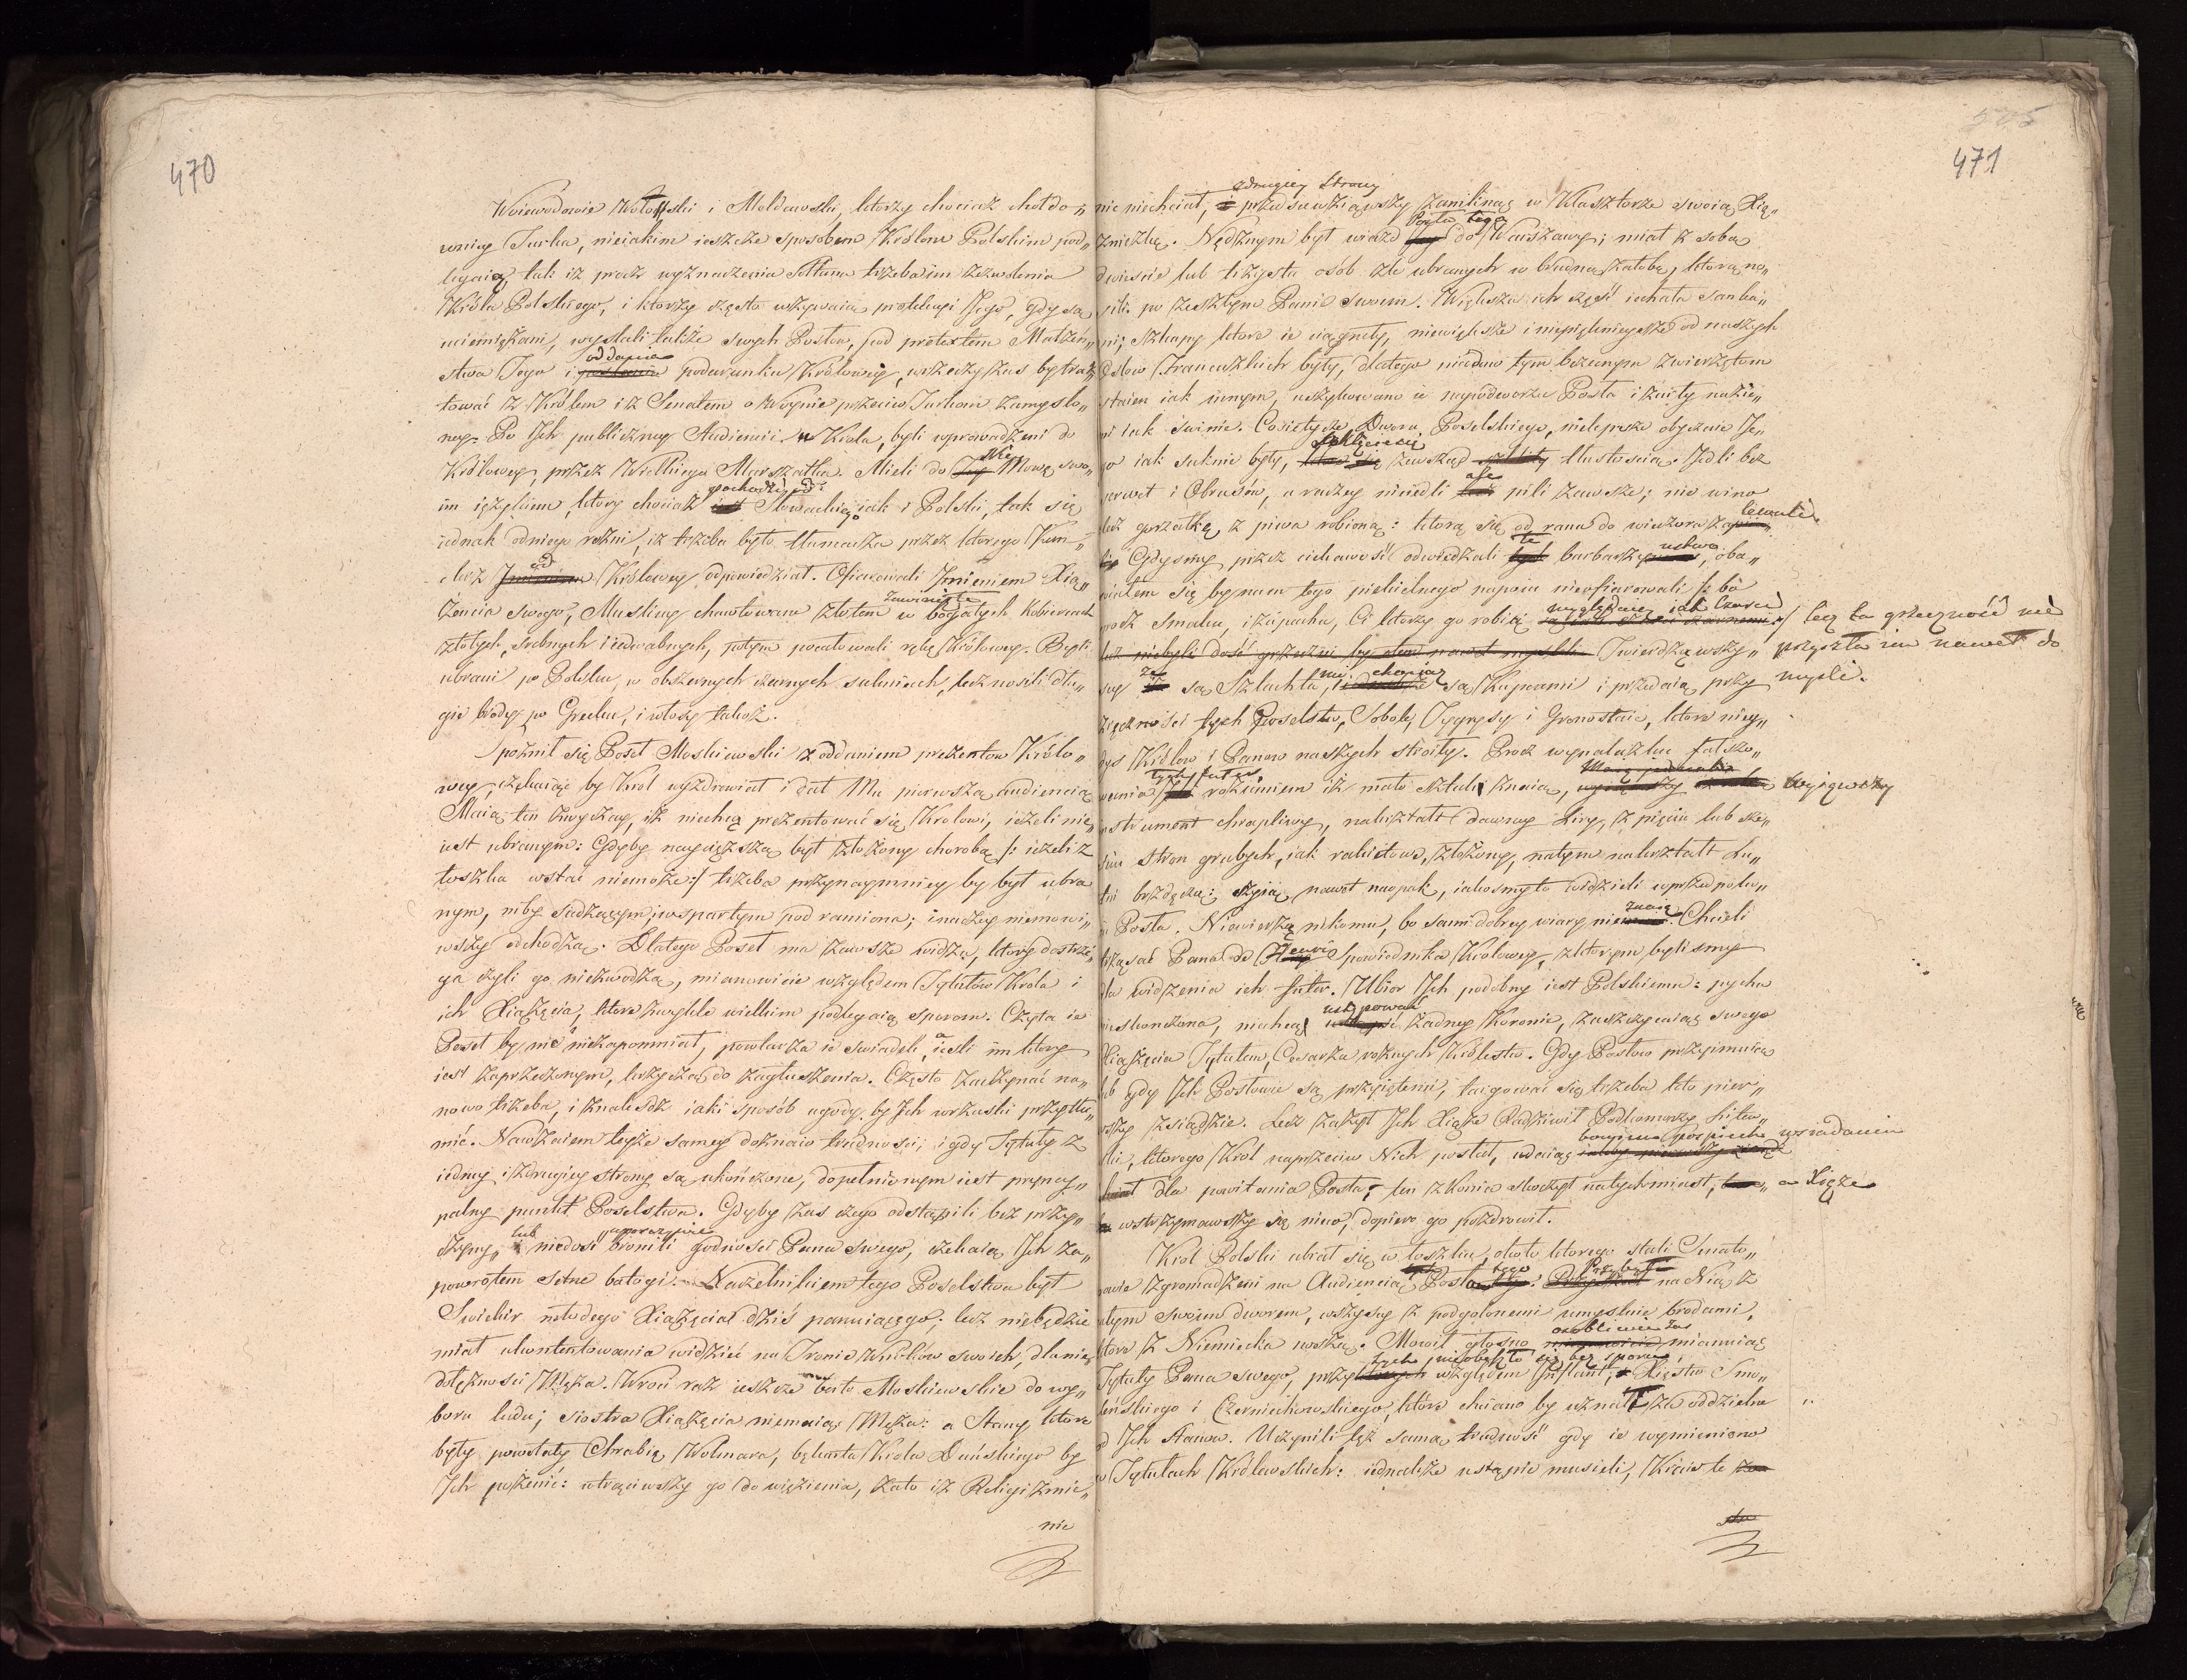 470
Woiewodowie Wołoski i Mołdawski, którzy chociaż chołdo„
wnicy Turka, nieiakim ieszcze sposobem Królom Polskim pod„
legaią, tak iż procz wyznaczenia Sołtana trzeba im zezwolenia
Króla Polskiego, i ktorzy często wzywaią protekcyi Jego, gdy są
uciemiężani, wysłali także swych Posłów, pod pretextem Małżeń„
oddania
stwa Jego i posłania podarunku Królowey, wrzeczy zaś by trak„
tować z Królem i z Senatem o Woynie przeciw Turkom zamyslo„
ney. Po Ich publiczney Audiencii u Krola, byli wprowadzeni do
Niey
Królowey, przez Wielkiego Marszałka. Mieli do Jey Mowę swo„
pochodzi od
im ięzykiem, ktory chociaż iest Słowackiego iak i Polski, tak się
iednak odniego rożni, iż trzeba było tłumacza przez ktorego Kan„
od
clerz Imieniem Królowey odpowiedział. Ofiarowali Imieniem Xią„
zawinięte
żęcia swego, Musliny chawtowane złotem w bogatych Kobiercach
złotych, srebnych i iedwabnych, potym pocałowali rękę Krolowey. Byli
ubrani po Polsku, w obszernych czarnych sukniach, lecz nosili dłu„
gie brody po Grecku, i włosy takoż.
Spoźnił się Poseł Moskiewski z oddaniem prezentow Królo„
wey, czekaiąc by Krol wyzdrowiał i dał Mu pierwszą audiencią
Maią ten zwyczay, iż niechcą prezentować się Krolowi, ieżeli nie
iest ubranym: Gdyby naycięzszą był złożony chorobą /: ieżeli z
łoszka wstać niemoże:/ trzeba przynaymniey by był ubra
nym, niby siedzącym i wspartym pod ramiona; inaczey niemowi„
wszy odchodzą. Dlatego Poseł ma zawsze widza, ktory dostrze„
ga czyli go niezwodzą, mianowicie względem Tytułow Krola i
ich Xiążęcia, ktore zwykle wielkim podlegaią sporom. Czyta ie
Poseł by nic niezapomniał, powtarza ie swiadek, a iesli im ktory
iest zaprzeczonym, krzyczą do zagłuszenia. Często zaczynać na„
nowo trzeba, i znalesdz iaki sposób ugody, by Ich wrzaski przytłu„
mić. Nawzaiem teyże samey doznaio trudnosci, i gdy Tytuły z
iedney i zdrugiey strony są ukończone, dopełnionym iest pryncy„
palny punkt Poselstwa. Gdyby zas czego odstąpili bez przy„
lub uporczywie
czyny, i niedosć bronili godnosci Pana swego, czekaią Ich za
powrotem setne batogi. Naczelnikiem tego Poselstwa był
Swiekir młodego Xiążęcia dziś panuiącego; lecz niebędzie
miał ukontentowania widzieć na Tronie Wnuków swoich, dla nie„
dołężnosci Męża. Wroci raz ieszcze berło Moskiewskie do wy„
boru ludu; siostra Xiążęcia niemaiąc Męża: a Stany ktore
były powołały Chrabię Wolmara, bękarta Krola Duńskiego by
Ich pożenić: wtrąciwszy go do więzienia, zato iż Religi zmie„
nic
505
471
zdrugiey strony
nic niechciał, a przedsiewziąwszy zamknąć w Klasztorze swoią Xię„
Posła tego
żniczkę. Nędznym był wiazd Jey do Warszawy; miał z sobą
dwieście lub trzysta osób zle ubranych w brudną żałobę, ktorą no„
sili po zeszłym Panie swoim. Większa ich część iechała sanka„
mi, szkapy ktore ie ciągnęły, niewiększe i niepiękniejsze od naszych
osłow Francuzkich były, dlatego niedano tym bezecnym zwierzętom
staien iak innym, uszykowano ie napodworzu Posła i znity nazie„
mi iak swinie. Cosiętycze Dworu Poselskiego, nielepsze obyczaie Ie„
go iak suknie były, zewsząd tłustością. Jedli bez
ale
serwet i Obrusów, a raczey nieiedli lecz pili zawsze; nie wino
lecz gorzałkę z piwa robioną: ktorą się od rana do wieczora zapi
lewali
te ustwo
Gdysmy przez ciekawość odwiedzali tych barbarzy, oba„
wiałem się by nam tego piekielnego napoiu nieofiarowali /: bo
wyglądaią iak Czarci
prócz smaku, i zapachu, Ci ktorzy go robią :/ lecz ta grzeczność nie
przyszła im nawet do
mysli.
lecz niebyli dość grzeczni by otem nawet mysleli Twierdząwszy„
że nie chociaż
scy są Szlachta, są Kupcami i przedaią przy
zięcznosci tych Poselstw, Soboly, Tygrysy i Gronostaie, ktore nieg„
dys Królow i Panow naszych stroiły. Procz wynalazku fałszo„
tych futer,
wania rozumiem iż mało sztuk znaią, wyiąwszy
instrument chrapliwy, nakształt dawney Liry, z pięciu lub sze„
sciu stron grubych, iak rakietowe, złożony, natym nakształt Lu„
tni brzdęka: szyią nawet naopak, iakosmyto widzieli wprzedpoko„
iu Posła. Niewierzą nikomu, bo sami dobrey wiary nie znaią. Chcieli
Fleuri
Pana de Spowiednika Krolowey, zktorym bylismy
dla widzenia ich futer. Ubior Ich podobny iest Polskiemu: pycha
ustępować
nieskończona, niechcą żadney Koronie, zaszczycaiąc swego
Xiążęcia Tytułem, Cesarza rożnych Krolestw. Gdy Posłow przyimuią
lub gdy Ich Posłowie są przyiętemi, targować się trzeba kto pier„
wszy zsiądzie. Lecz zażył Ich Xiąże Radziwił Podkomorzy Litew„
ski, ktorego Krol naprzeciw Nich posłał, udaiąc wsiadaniu
dla powitania Posła: ten z konia skoczył natychmiast, a Xiąże
wstrzymawszy się nieco, dopiero go pozdrowił.
Krol Polski ubrał się w łoszku, około ktorego stali Senato„
rowie zgromadzeni na Audiencią Posła tego. Przybył na Nią z
całym swoim dworem, wszyscy z podgolonemi umyslnie brodami,
osobliwie zas
ktore z Niemiecka noszą. Mowił głosno mianuiąc
tych nieobeszło się bez sporu,
Tytuły Pana swego, przy względem Inflant, i Xięstw Smo„
leńskiego i Czerniechowskiego, które chciano by uznał za oddzielne
od Ich stanow. Uczynili też samą trudność gdy ie wymieniono
w Tytułach Królewskich: iednakże ustąpić musieli, Kraie te